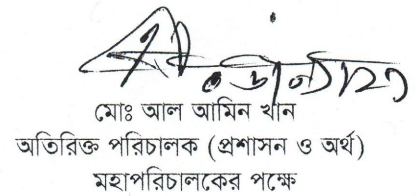 মোঃ আল আমিন খান
অতিরিক্ত পরিচালক (প্রশাসন ও অর্থ)
মহাপরিচালকের পক্ষে